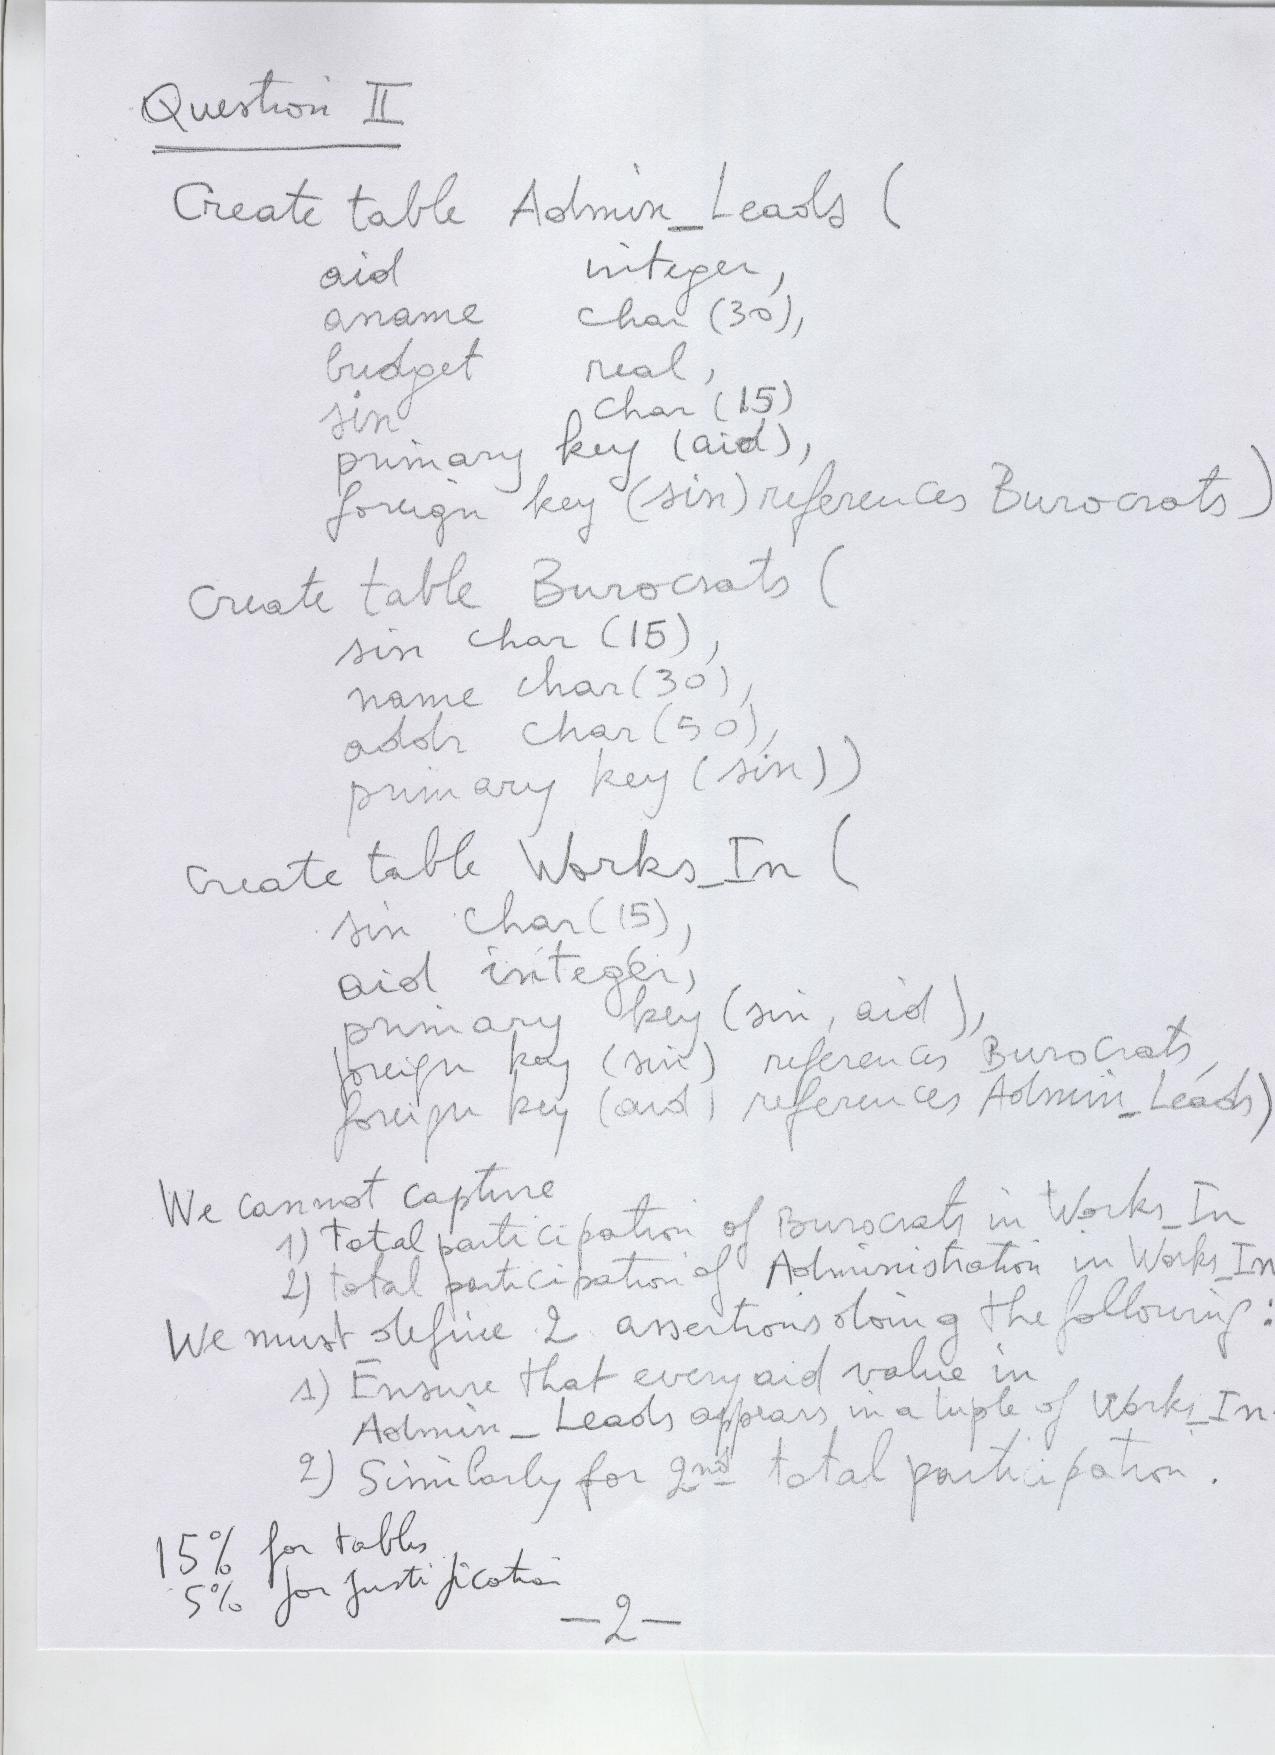 Question II
Create table Admin_Leads (
aid integer,
aname char (30),
budget real,
sin char (15)
primary key (aid),
foreign key (sin) references Burocrats)
Create table Burocrats (
sin char (15),
name char (30),
addr char (50),
primary key (sin))
Create table Works_In (
sin char (15),
aid integer,
primary key (sin, aid),
foreign key (sin) references Burocrats,
foreign key (aid) references Admin_Leads)
We cannot capture
1) Total participation of Burocrats in Works_In
2) total participation of Administration in Works_In
We must define 2 assertions doing the following:
1) Ensure that every aid value in
Admin_Leads appears in a tuple of Works_In.
2) Similarly for 2nd total participation.
15% for tables
5% for justification
-2-